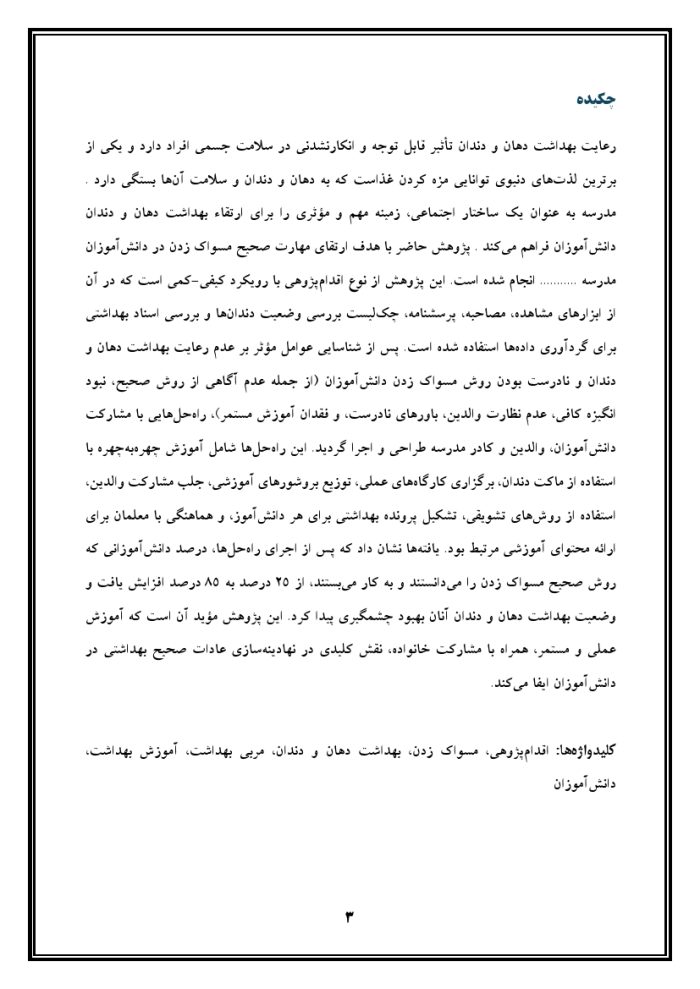 چکیده
رعایت بهداشت دهان و دندان تأثیر قابل توجه و انکارنشدنی در سلامت جسمی افراد دارد و یکی از
برترین لذت‌های دنیوی توانایی مزه کردن غذاست که به دهان و دندان و سلامت آن‌ها بستگی دارد .
مدرسه به عنوان یک ساختار اجتماعی، زمینه مهم و مؤثری را برای ارتقاء بهداشت دهان و دندان
دانش‌آموزان فراهم می‌کند . پژوهش حاضر با هدف ارتقای مهارت صحیح مسواک زدن در دانش‌آموزان
مدرسه ........... انجام شده است. این پژوهش از نوع اقدام‌پژوهی با رویکرد کیفی-کمی است که در آن
از ابزارهای مشاهده، مصاحبه، پرسشنامه، چک‌لیست بررسی وضعیت دندان‌ها و بررسی اسناد بهداشتی
برای گردآوری داده‌ها استفاده شده است. پس از شناسایی عوامل مؤثر بر عدم رعایت بهداشت دهان و
دندان و نادرست بودن روش مسواک زدن دانش‌آموزان (از جمله عدم آگاهی از روش صحیح، نبود
انگیزه کافی، عدم نظارت والدین، باورهای نادرست، و فقدان آموزش مستمر)، راه‌حل‌هایی با مشارکت
دانش‌آموزان، والدین و کادر مدرسه طراحی و اجرا گردید. این راه‌حل‌ها شامل آموزش چهره‌به‌چهره با
استفاده از ماکت دندان، برگزاری کارگاه‌های عملی، توزیع بروشورهای آموزشی، جلب مشارکت والدین،
استفاده از روش‌های تشویقی، تشکیل پرونده بهداشتی برای هر دانش‌آموز، و هماهنگی با معلمان برای
ارائه محتوای آموزشی مرتبط بود. یافته‌ها نشان داد که پس از اجرای راه‌حل‌ها، درصد دانش‌آموزانی که
روش صحیح مسواک زدن را می‌دانستند و به کار می‌بستند، از ۲۵ درصد به ۸۵ درصد افزایش یافت و
وضعیت بهداشت دهان و دندان آنان بهبود چشمگیری پیدا کرد. این پژوهش مؤید آن است که آموزش
عملی و مستمر، همراه با مشارکت خانواده، نقش کلیدی در نهادینه‌سازی عادات صحیح بهداشتی در
دانش‌آموزان ایفا می‌کند.
کلیدواژه‌ها: اقدام‌پژوهی، مسواک زدن، بهداشت دهان و دندان، مربی بهداشت، آموزش بهداشت،
دانش‌آموزان
۳